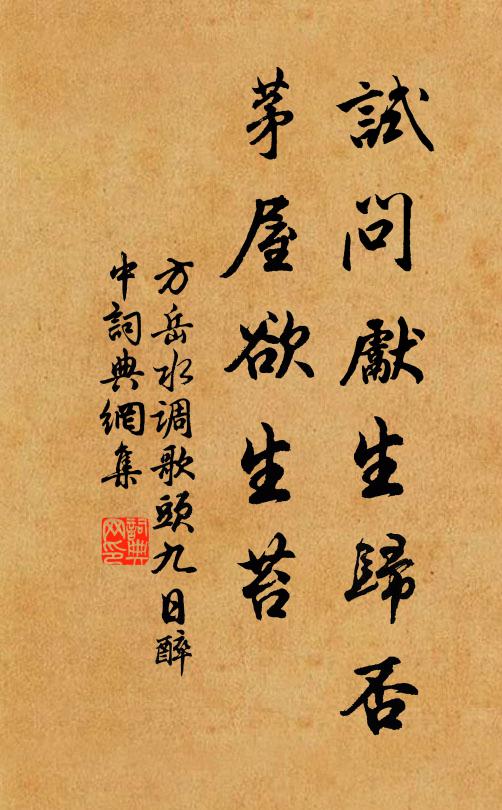 試問獻生歸否
茅屋欲生苔
方岳水调歌頭九日醉
中詞典網集
詞典
网印